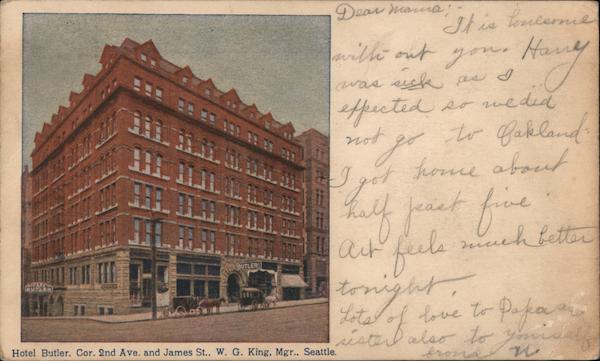 Dear Mama:-
It is lonesome
with out you. Harry
was sick as I
expected so we did
not go to Oakland.
I got home about
half past five.
Art feels much better
tonight.
Lots of love to Papa
sister also to yourself
BUTLER
Hotel Butler, Cor. 2nd Ave. and James St., W. G. King, Mgr., Seattle.